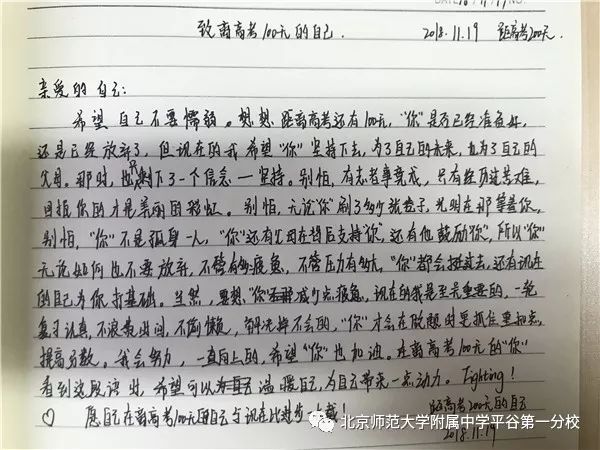 致离高考100天的自己. 2018.11.19 距高考200天.
亲爱的 自己:
希望 自己不要懦弱。想想,距离高考还有100天,"你"是否已经准备好,
还是已经放弃了,但现在的我 希望"你"坚持下去,为了自己的未来,也为了自己的
父母。那时,也只剩下了一个信念一坚持。别怕,有志者事竟成,只有经历过苦难,
迎接你的才是美丽的彩虹。别怕,无论"你"刷了多少张卷子,光明在那等着你,
别怕,"你"不是孤身一人,"你"还有父母在背后支持"你",还有他鼓励"你",所以"你"
无论如何也不要放弃,不管有多疲惫,不管压力有多大,"你"都会挺过去,还有现在
的自己为你打基础。当然,要想"你"减少点疲惫,现在的我是至关重要的,一轮
复习认真,不浪费时间,不偷懒,解决掉不会的,"你"才会在做题时更抓住重知点,
提高分数。我会努力,一直向上的,希望"你"也加油。在离高考100天的"你"
看到这段话时,希望可以温暖自己,为自己带来一点动力。Fighting!
♡ 愿自己在离高考100天的自己与现在比进步 距高考200天的自己
2018.11.19
北京师范大学附属中学平谷第一分校